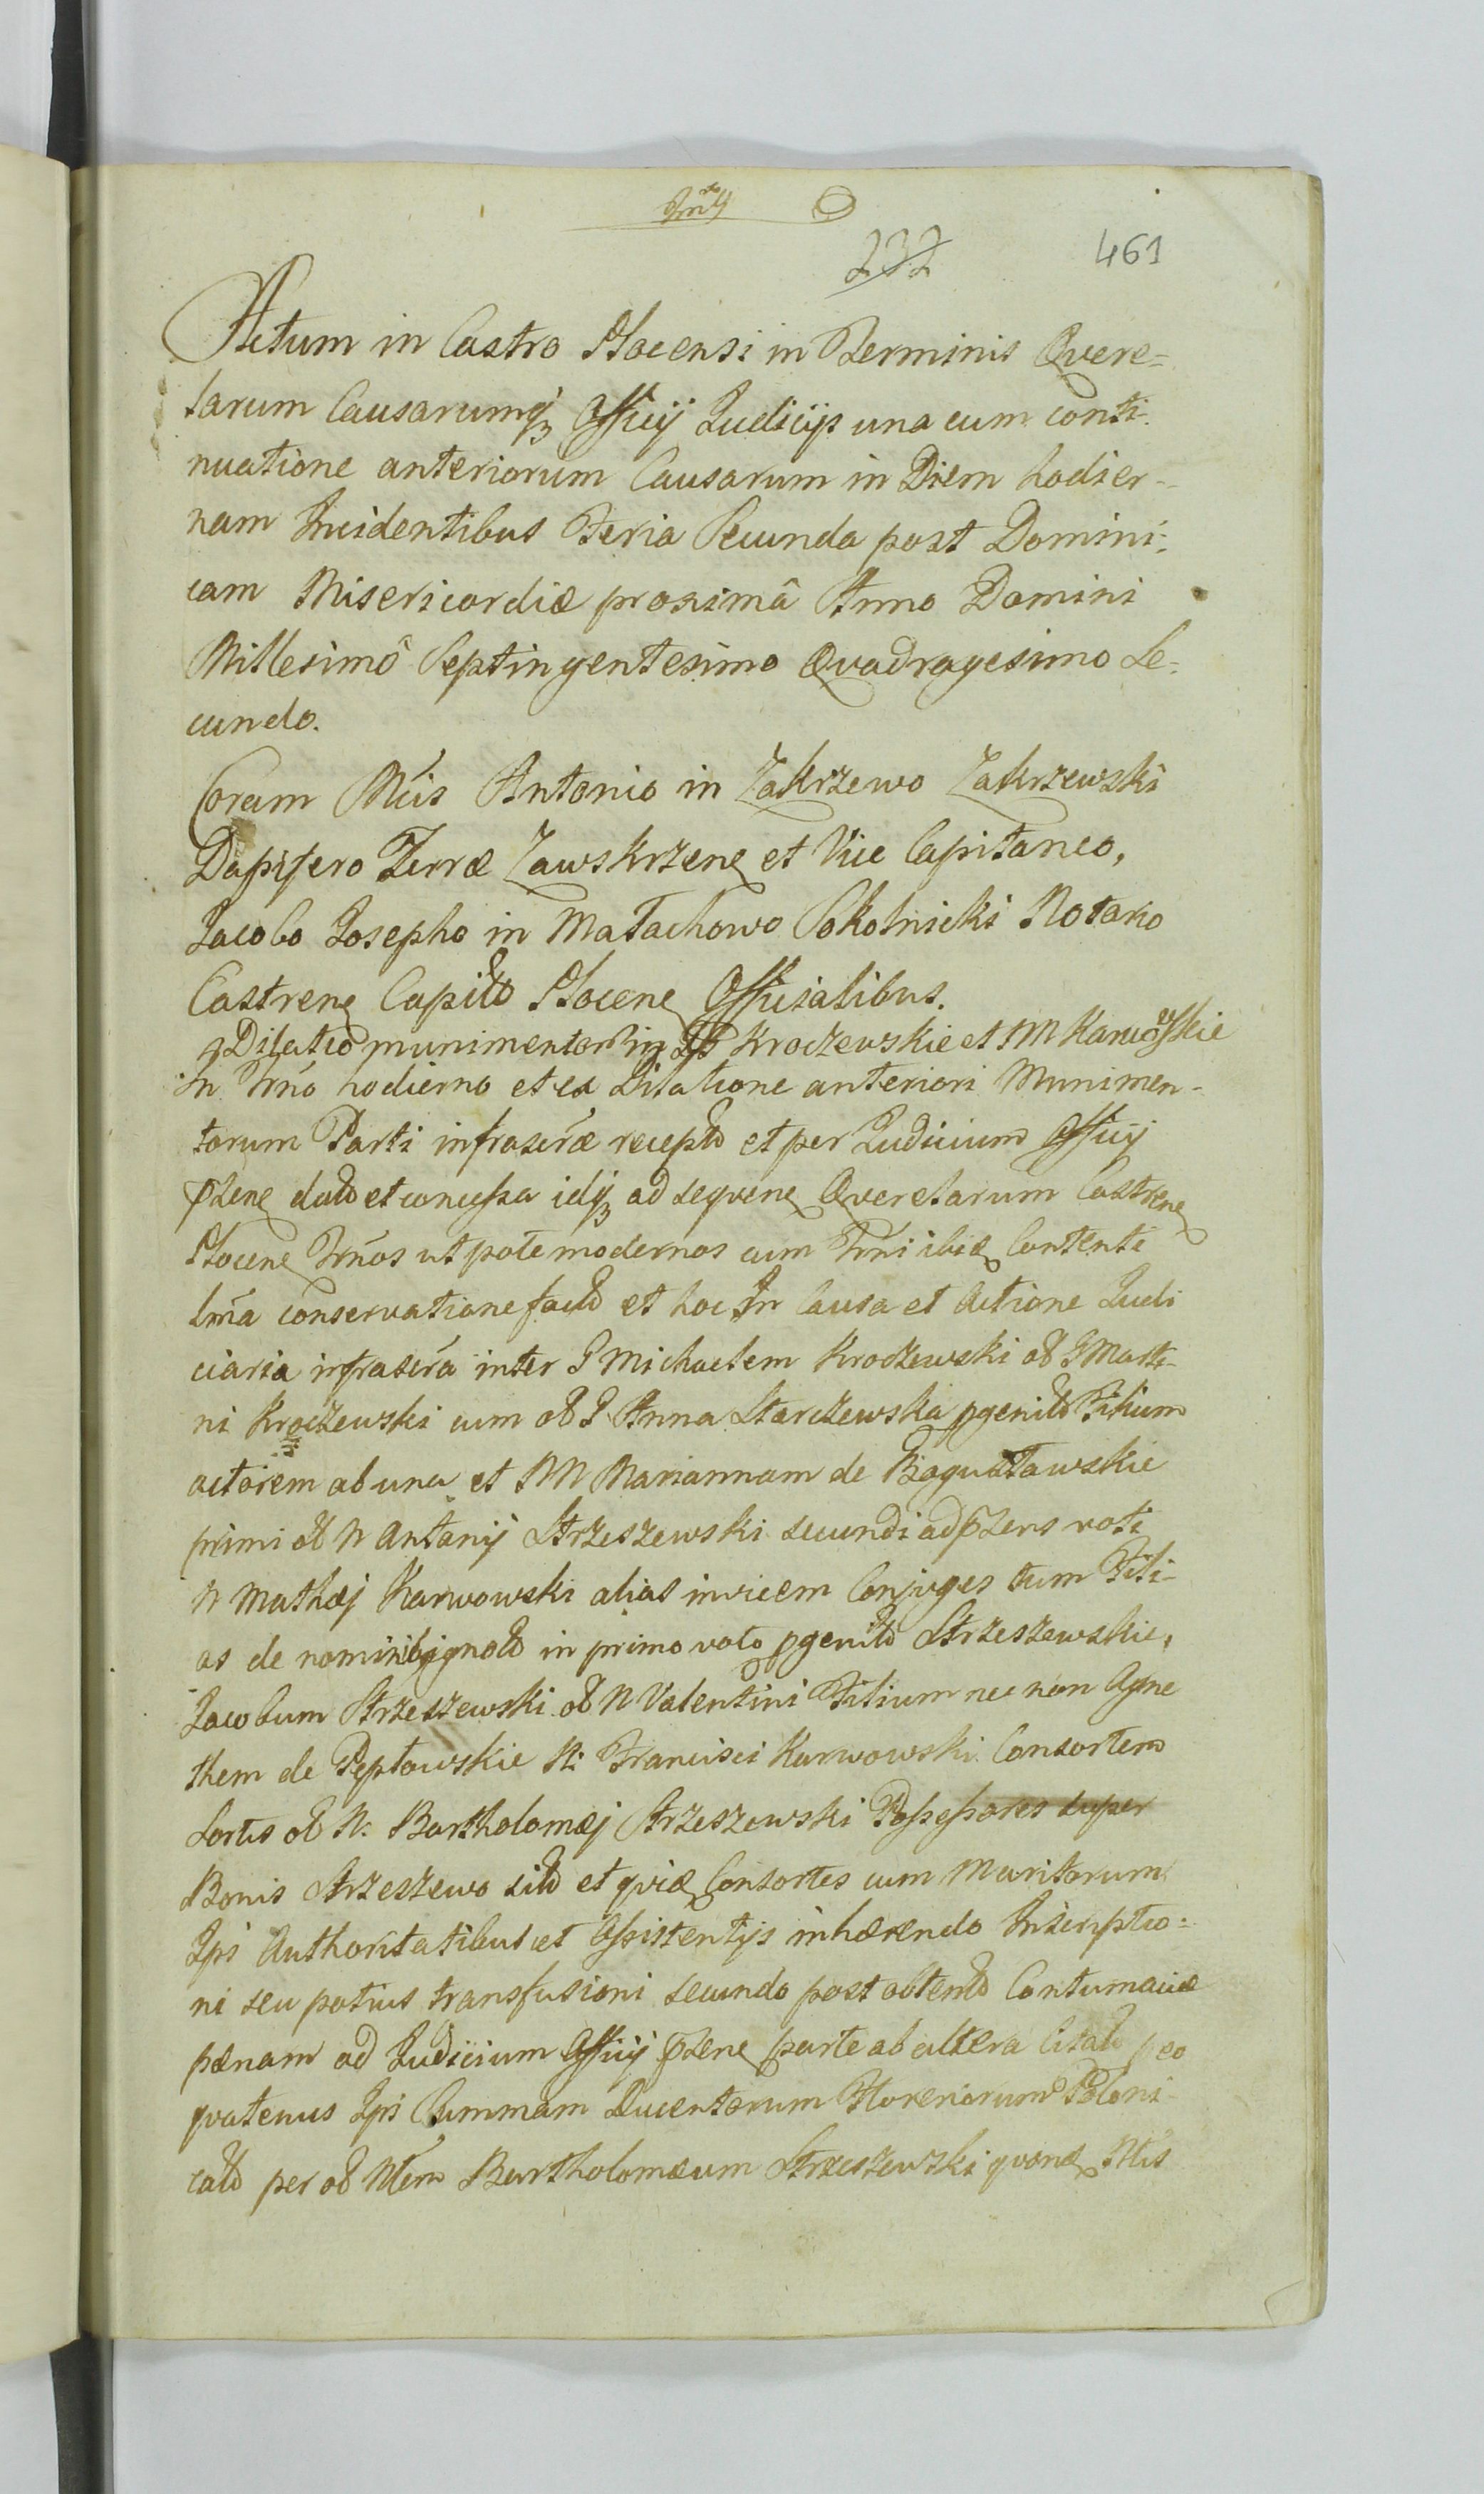 232 461
Actum in Castro Plocensi in Terminis Qvere-
larum Causarumq; Officij Judicijs una cum conti-
nuatione anteriorum Causarum in Diem hodier-
nam Incidentibus Feria Secunda post Domini-
cam Misericordiæ proximâ Anno Domini
Millesimô Septingentesimo Qvadragesimo Se-
cundo.
Coram Mcis Antonio in Zakrzewo Zakrzewski
Dapifero Terræ Zawskrzene et Vice Capitaneo,
Jacobo Josepho in Małachowo Sokolnicki Notario
Castrene Capitlo Plocene Officialibus.
Dilatio munimentor in Krockewskie et M Karwoskie
In Trno hodierno et ex Dilatione anteriori Munimen-
torum Parti infrascræ recepto et per Judicium Officij
pzene dato et concessa idq; ad seqvene Qverelarum Castrene
Plocene Trnos ut pote modernos cum Trni ibiæ Contenti
lma conservatione facto et hoc In Causa et Actione Judi
ciaria infrascra inter G Michaelem Kroczewski ol G Marti-
ni Kroczewski cum ol G Anna Starczewska pgenito Filium
actorem ab una et NN Mariannam de Bogusławskie
primi ol N Antonij Strzeszewski secundi ad pzens voti
N Mathæj Karwowski alias invicem Conjuges tum Fili-
as de nominib ignoto in primo voto pgenito Strzeszewskie,
Jacobum Strzeszewski ol N Valentini Filium nec non Agne
them de Pepłowskie N: Francisci Karwowski Consortem
Sortis ol N. Bartholomæj Strzeszewski Possessores super
Bonis Strzeszewo sito et qviæ Consortes cum Maritorum
Ipsi Authoritatibus et Assistentijs inhærendo Inscriptio-
ni seu potius transfusioni secundo post obtento Contumaciæ
pænam ad Judicium Officij pzene parte ab altera Citato peo
qvatenus Ipsi Summam Ducentorum Florenorum Poloni-
calo per ol Nlem Bartholomæum Strzeszewski qvonæ Nlis